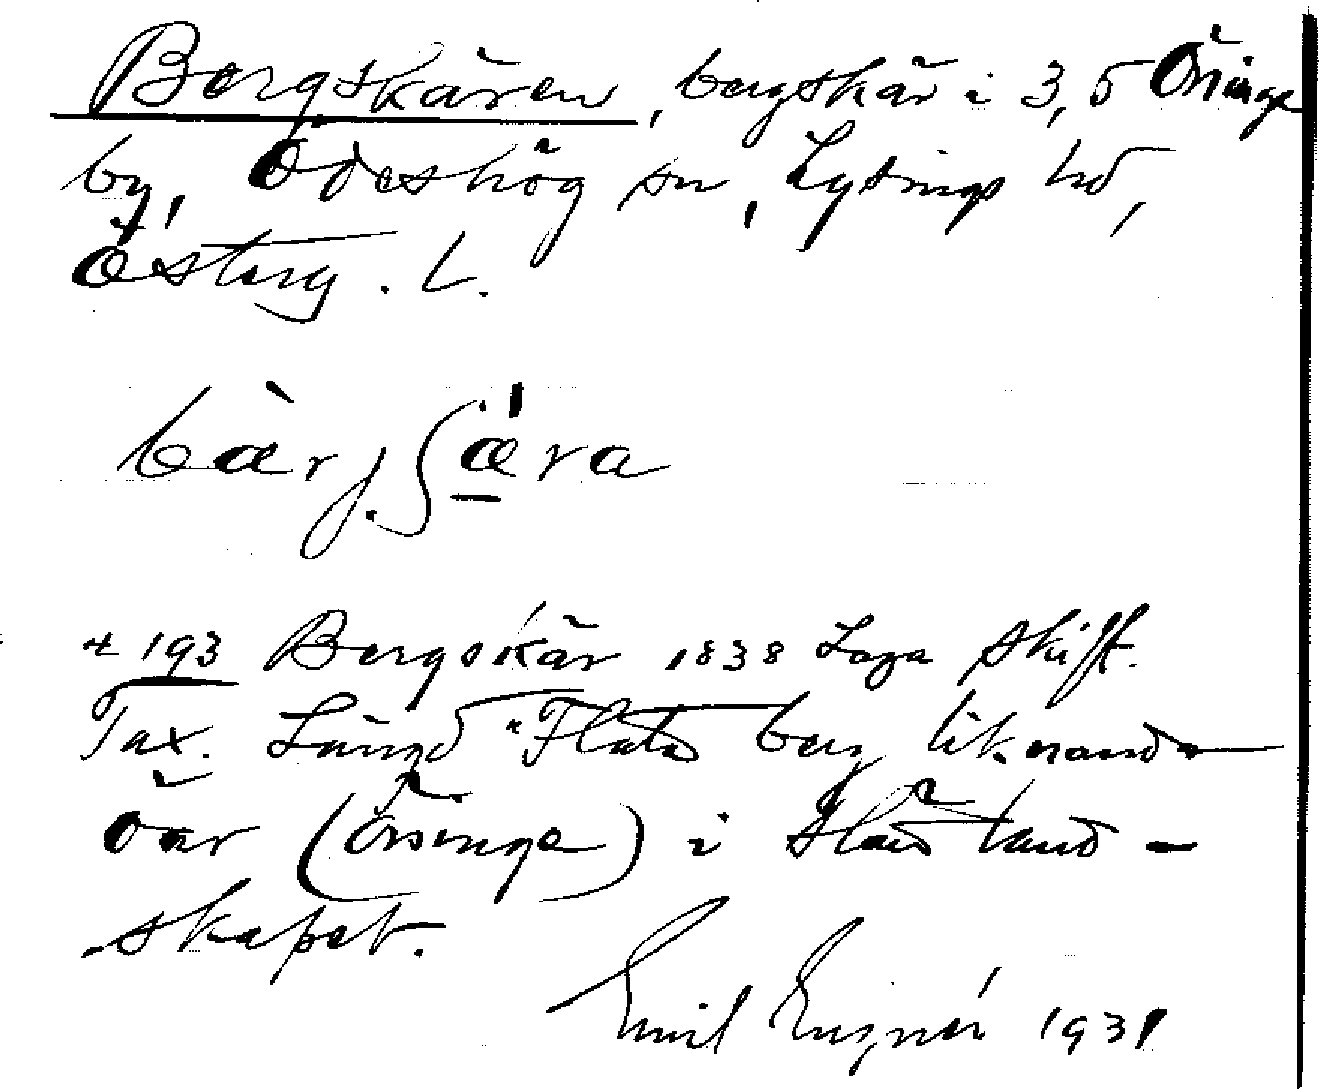 Bergskären, bergskär i 3,5 Örsinge
by, Ödeshög sn, Lysings hd,
Österg. L.
bàrj.ʃära
4 193 Bergskär 1838 Laga Skift.
Tax. Längd "Flata berg liknande
öar (Örsinge) i slätt land-
skapet.
Emil Engnér 1931